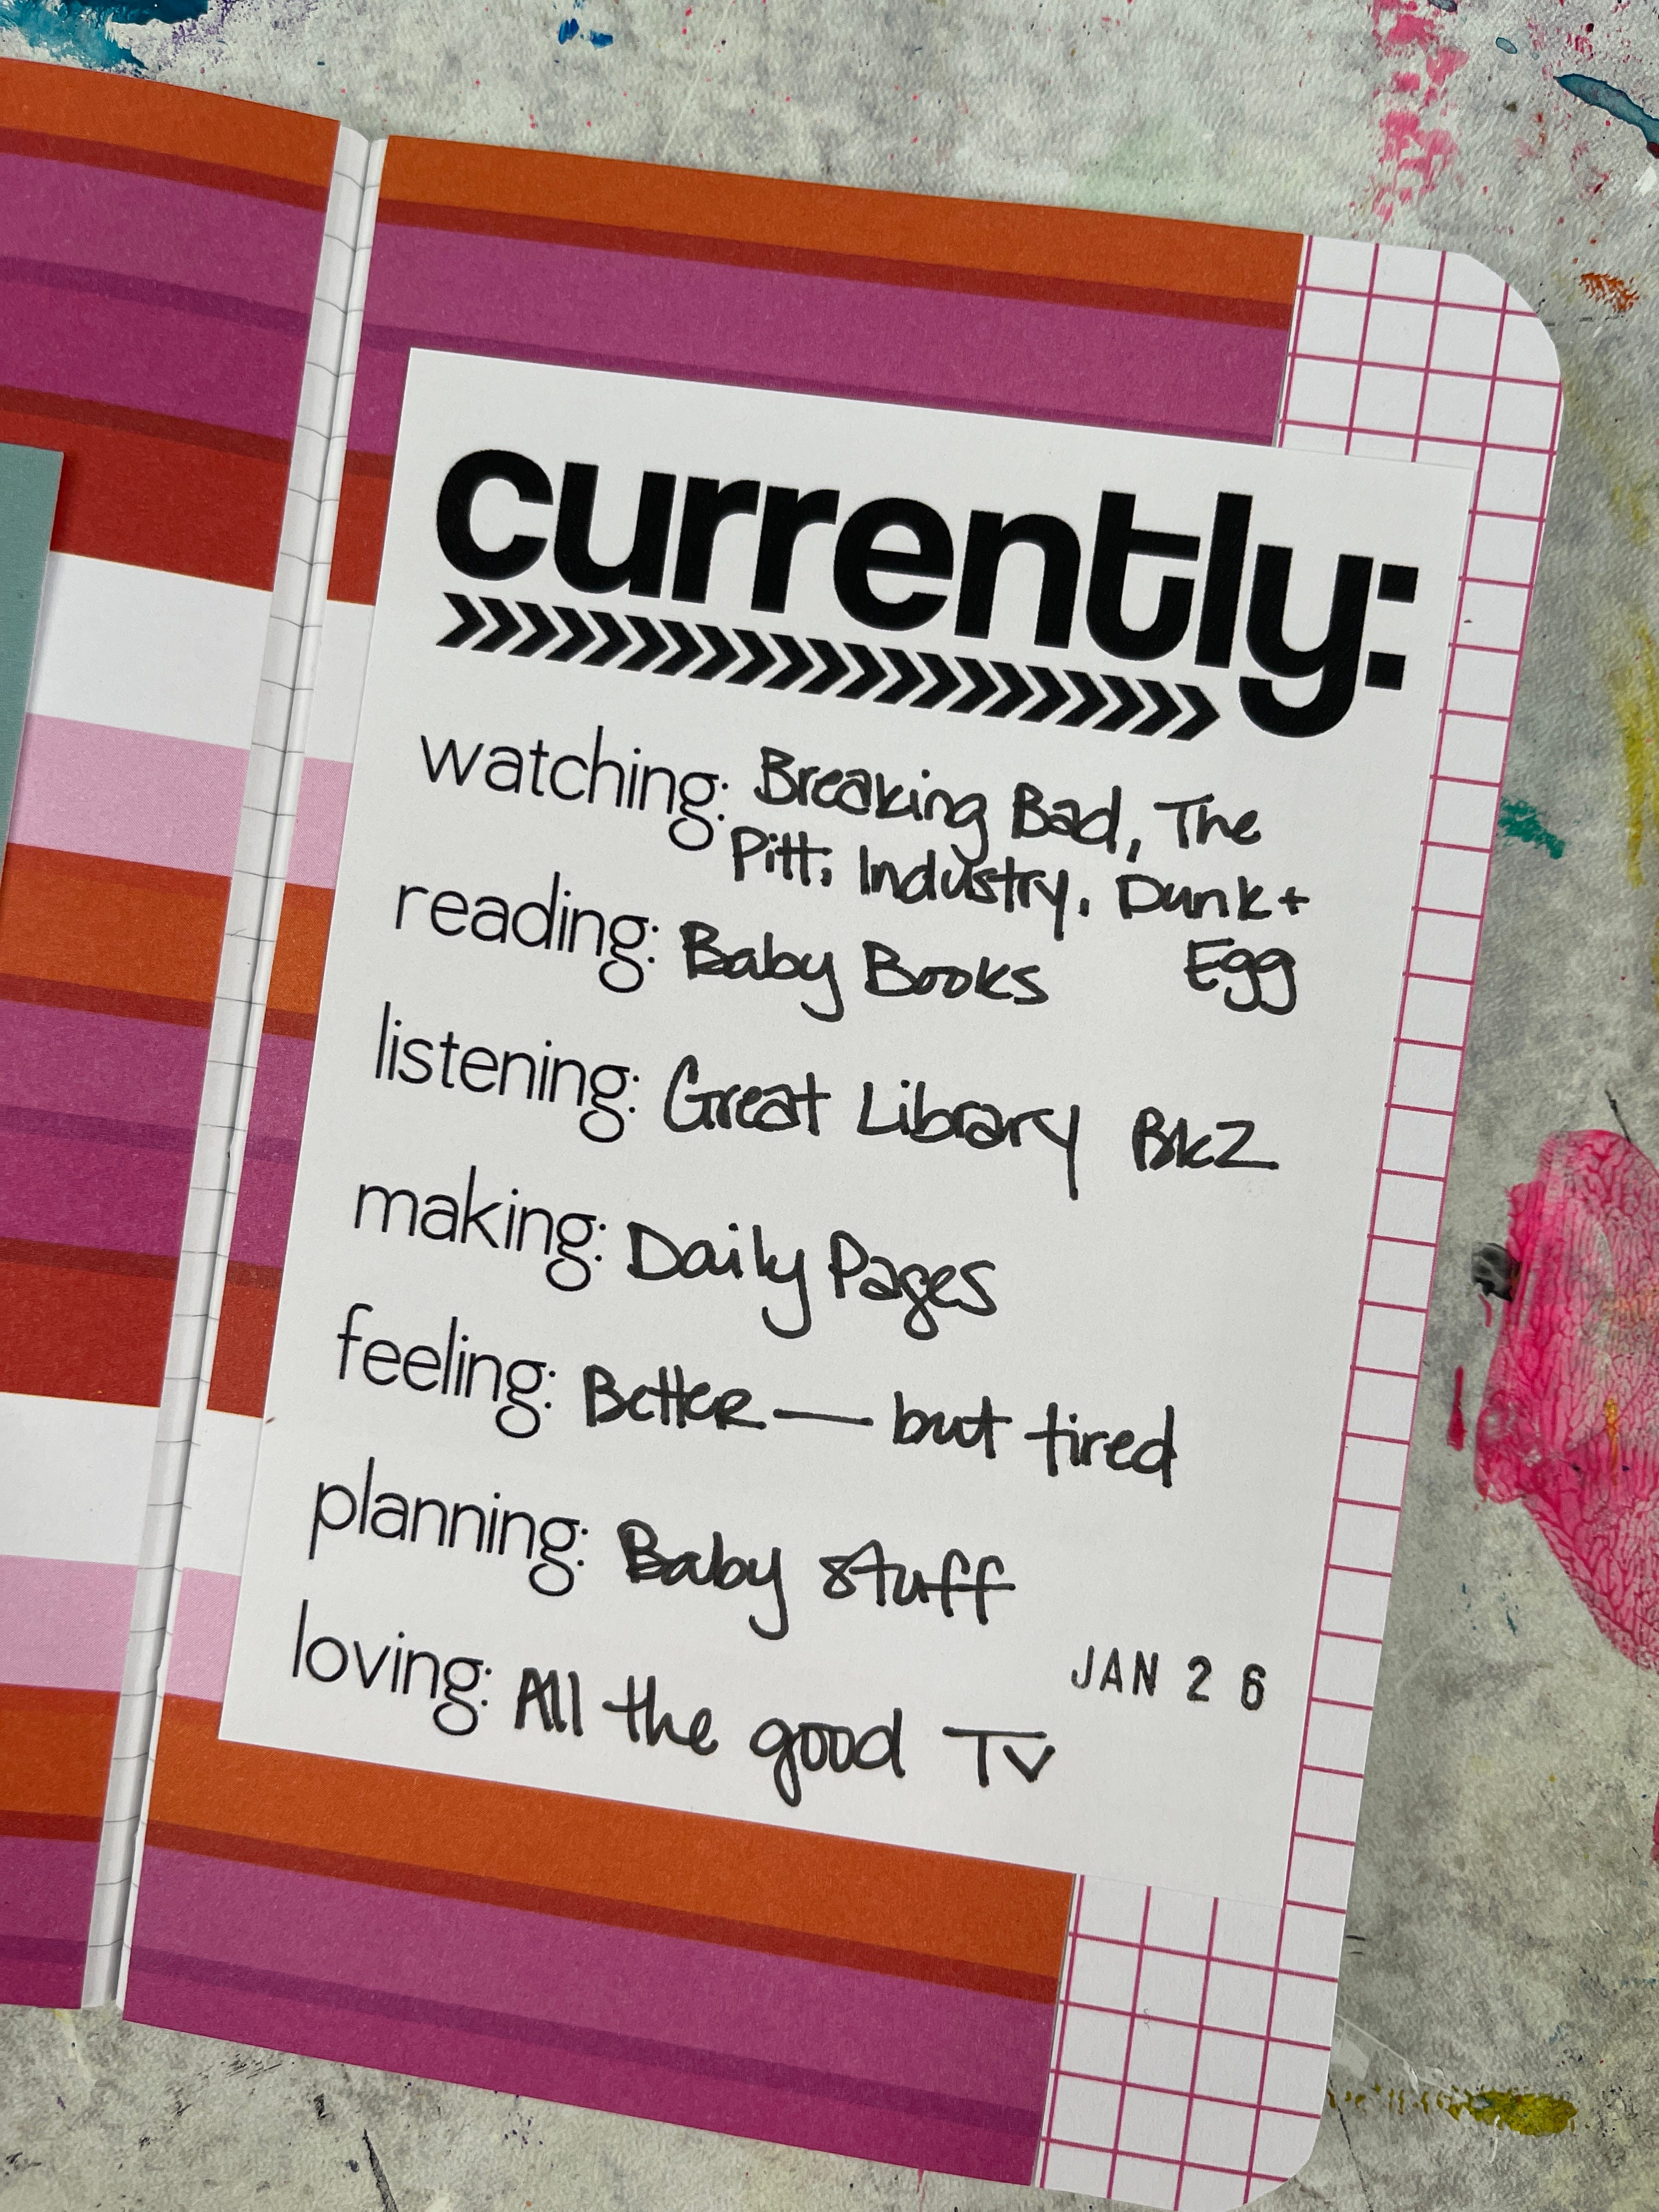 currently:
watching: Breaking Bad, The
Pitt, Industry, Dunk +
Egg
reading: Baby Books
listening: Great Library Bk2
making: Daily Pages
feeling: Better — but tired
planning: Baby stuff
loving: All the good TV
JAN 2 6